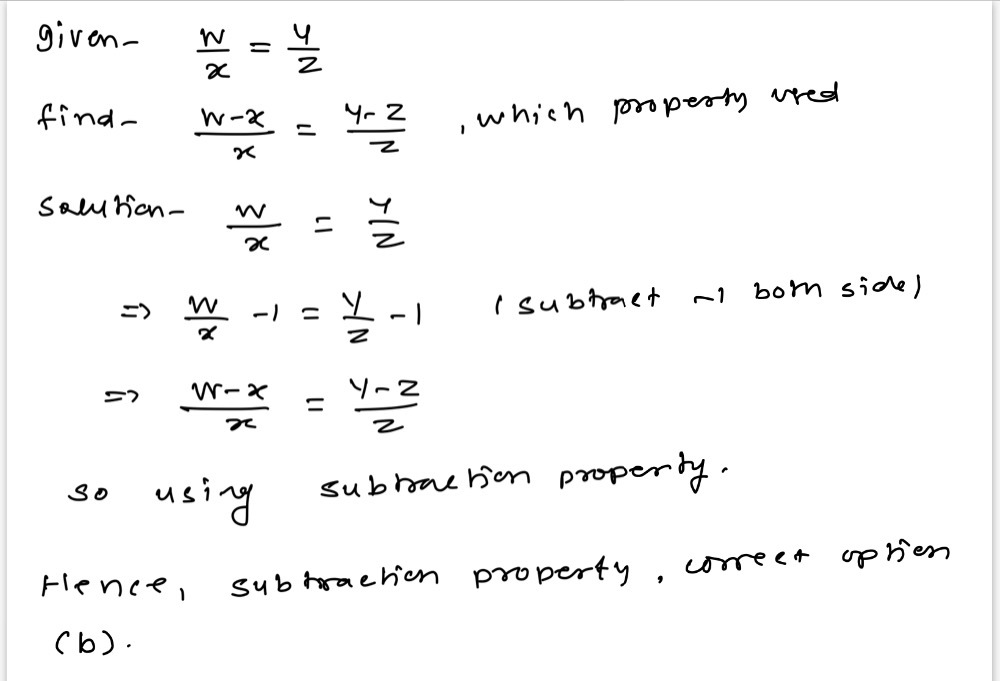 given- w/x = y/z
find- w-x/x = y-z/z , which property used
Solution- w/x = y/z
=> w/x -1 = y/z -1 (subtract -1 both side)
=> w-x/x = y-z/z
so using subtraction property.
Hence, subtraction property, correct option
(b).